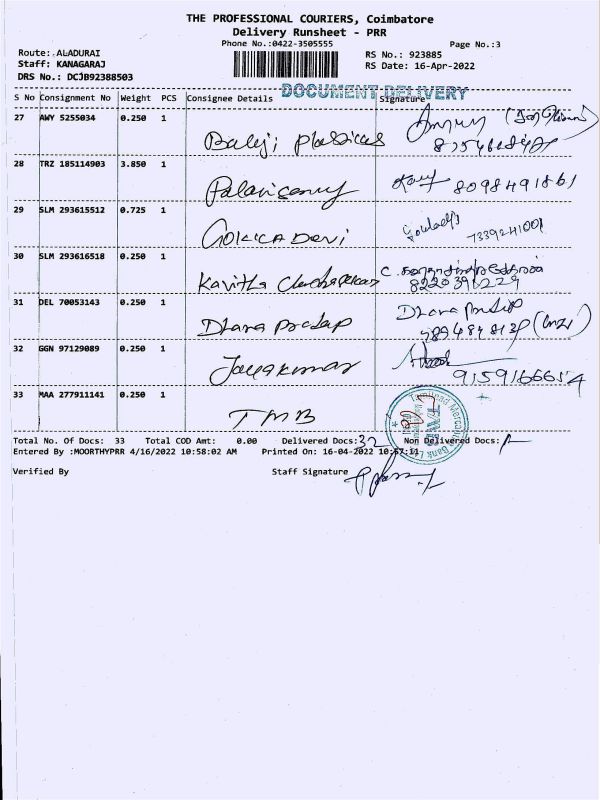 THE PROFESSIONAL COURIERS, Coimbatore
Delivery Runsheet - PRR
Phone No.:0422-3505555
Page No.:3
Route: ALADURAI
RS No.: 923885
Staff: KANAGARAJ
RS Date: 16-Apr-2022
DRS No.: DCJB92388503
DOCUMENT DELIVERY
S No Consignment No Weight PCS Consignee Details Signature
27 AWY 5255034 0.250 1
Balaji plasticus
28 TRZ 185114903 3.850 1
Palanisamy 8098491861
29 SLM 293615512 0.725 1
GOKILA DEVI 7339241001
30 SLM 293616518 0.250 1
Kavitha
8220391229
31 DEL 70053143 0.250 1
Dhana Pratap
32 GGN 97129089 0.250 1
Jayakumar
9159166654
33 MAA 277911141 0.250 1
TMB
Total No. Of Docs: 33 Total COD Amt: 0.00 Delivered Docs: 32 Non Delivered Docs: 1
Entered By :MOORTHYPRR 4/16/2022 10:58:02 AM Printed On: 16-04-2022 10:57:11
Verified By Staff Signature